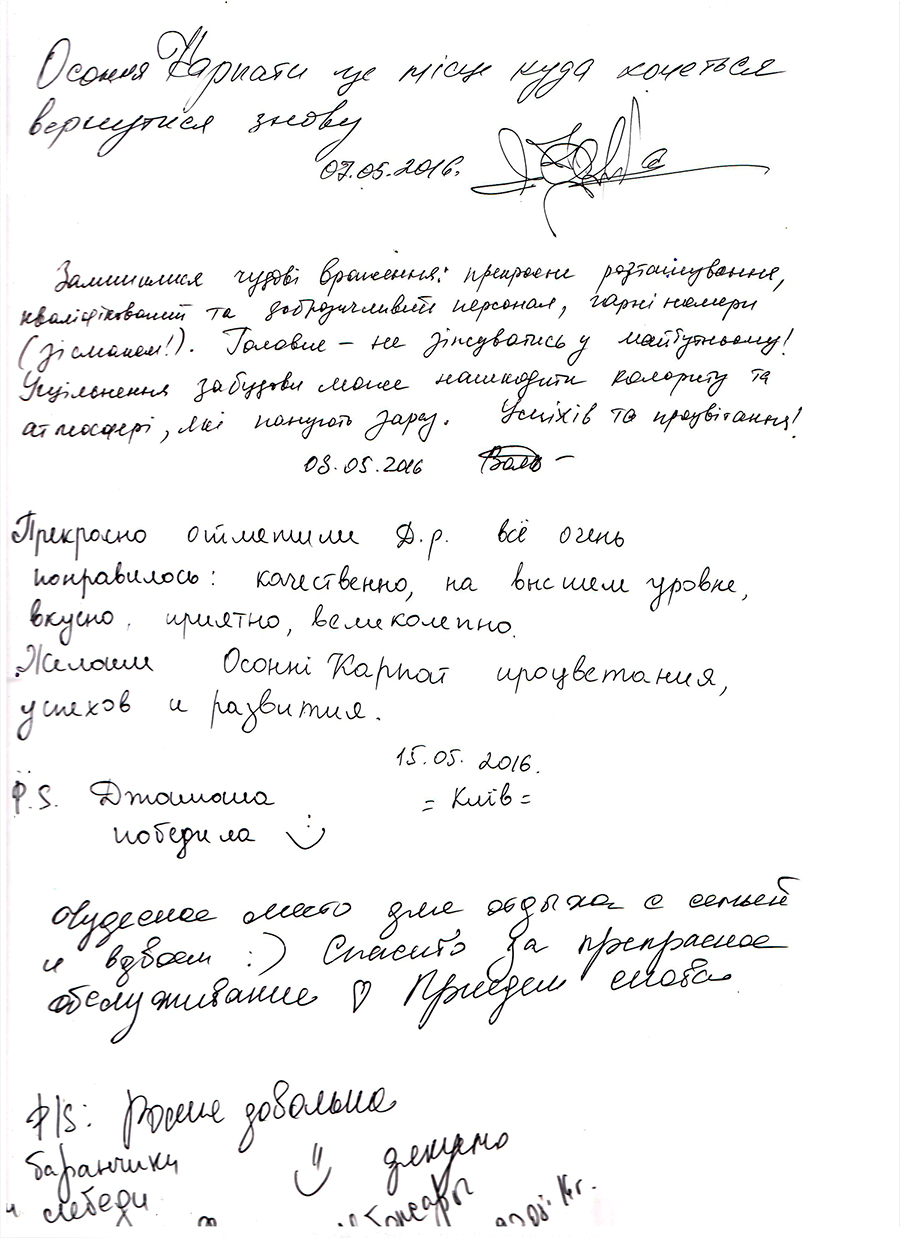 Осоння Карпати це місце куда хочеться
вернутися знову
07.05.2016.
Залишилися чудові враження: прекрасне розташування,
кваліфікований та доброзичливий персонал, гарні номери
(зі смаком!). Головне – не зіпсуватись у майбутньому!
Ущільнення забудови може нашкодити колориту та
атмосфері, які панують зараз. Успіхів та процвітання!
08.05.2016
Прекрасно отметили Д.р. всё очень
понравилось: качественно, на высшем уровне,
вкусно, приятно, великолепно.
Желаем Осонні Карпат процветания,
успехов и развития.
15.05. 2016.
= Київ =
P.S. Джамала
победила :)
Чудесное место для отдыха с семьей
и вдвоем :) Спасибо за прекрасное
обслуживание ♡ Приедем снова
P/S: довольна
баранчики
дякуємо
и лебеди